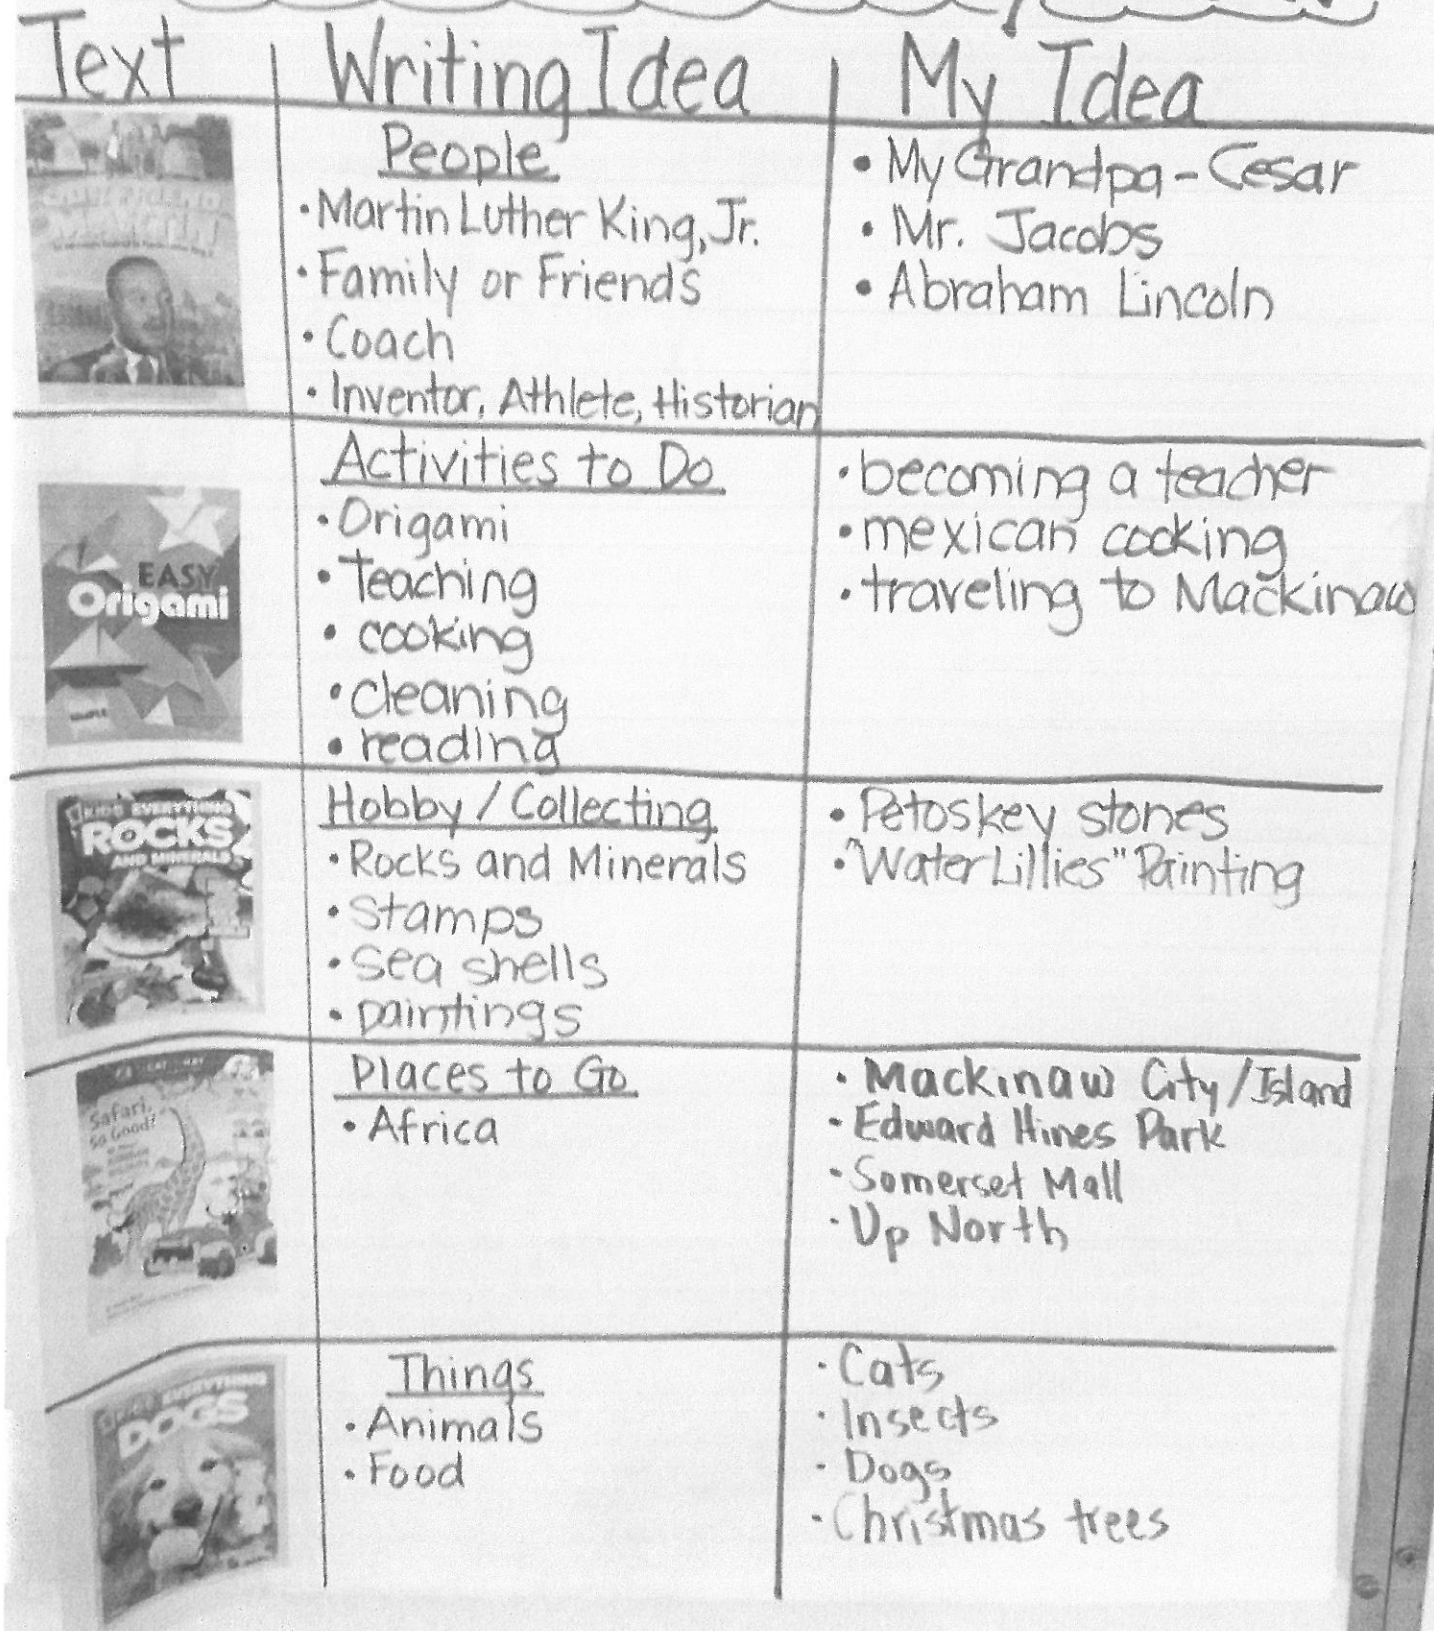 Text
Writing Idea
My Idea
People
• Martin Luther King, Jr.
• Family or Friends
• Coach
• Inventor, Athlete, Historian
• My Grandpa - Cesar
• Mr. Jacobs
• Abraham Lincoln
EASY
Origami
Activities to Do
• Origami
• Teaching
• cooking
• cleaning
• reading
• becoming a teacher
• mexican cooking
• traveling to Mackinaw
KIDS EVERYTHING
ROCKS
AND MINERALS
Hobby / Collecting
• Rocks and Minerals
• stamps
• sea shells
• paintings
• Petoskey stones
• "Water Lillies" Painting
Safari,
So Good!
Places to Go
• Africa
• Mackinaw City / Island
• Edward Hines Park
• Somerset Mall
• Up North
EVERYTHING
DOGS
Things
• Animals
• Food
• Cats
• Insects
• Dogs
• Christmas trees